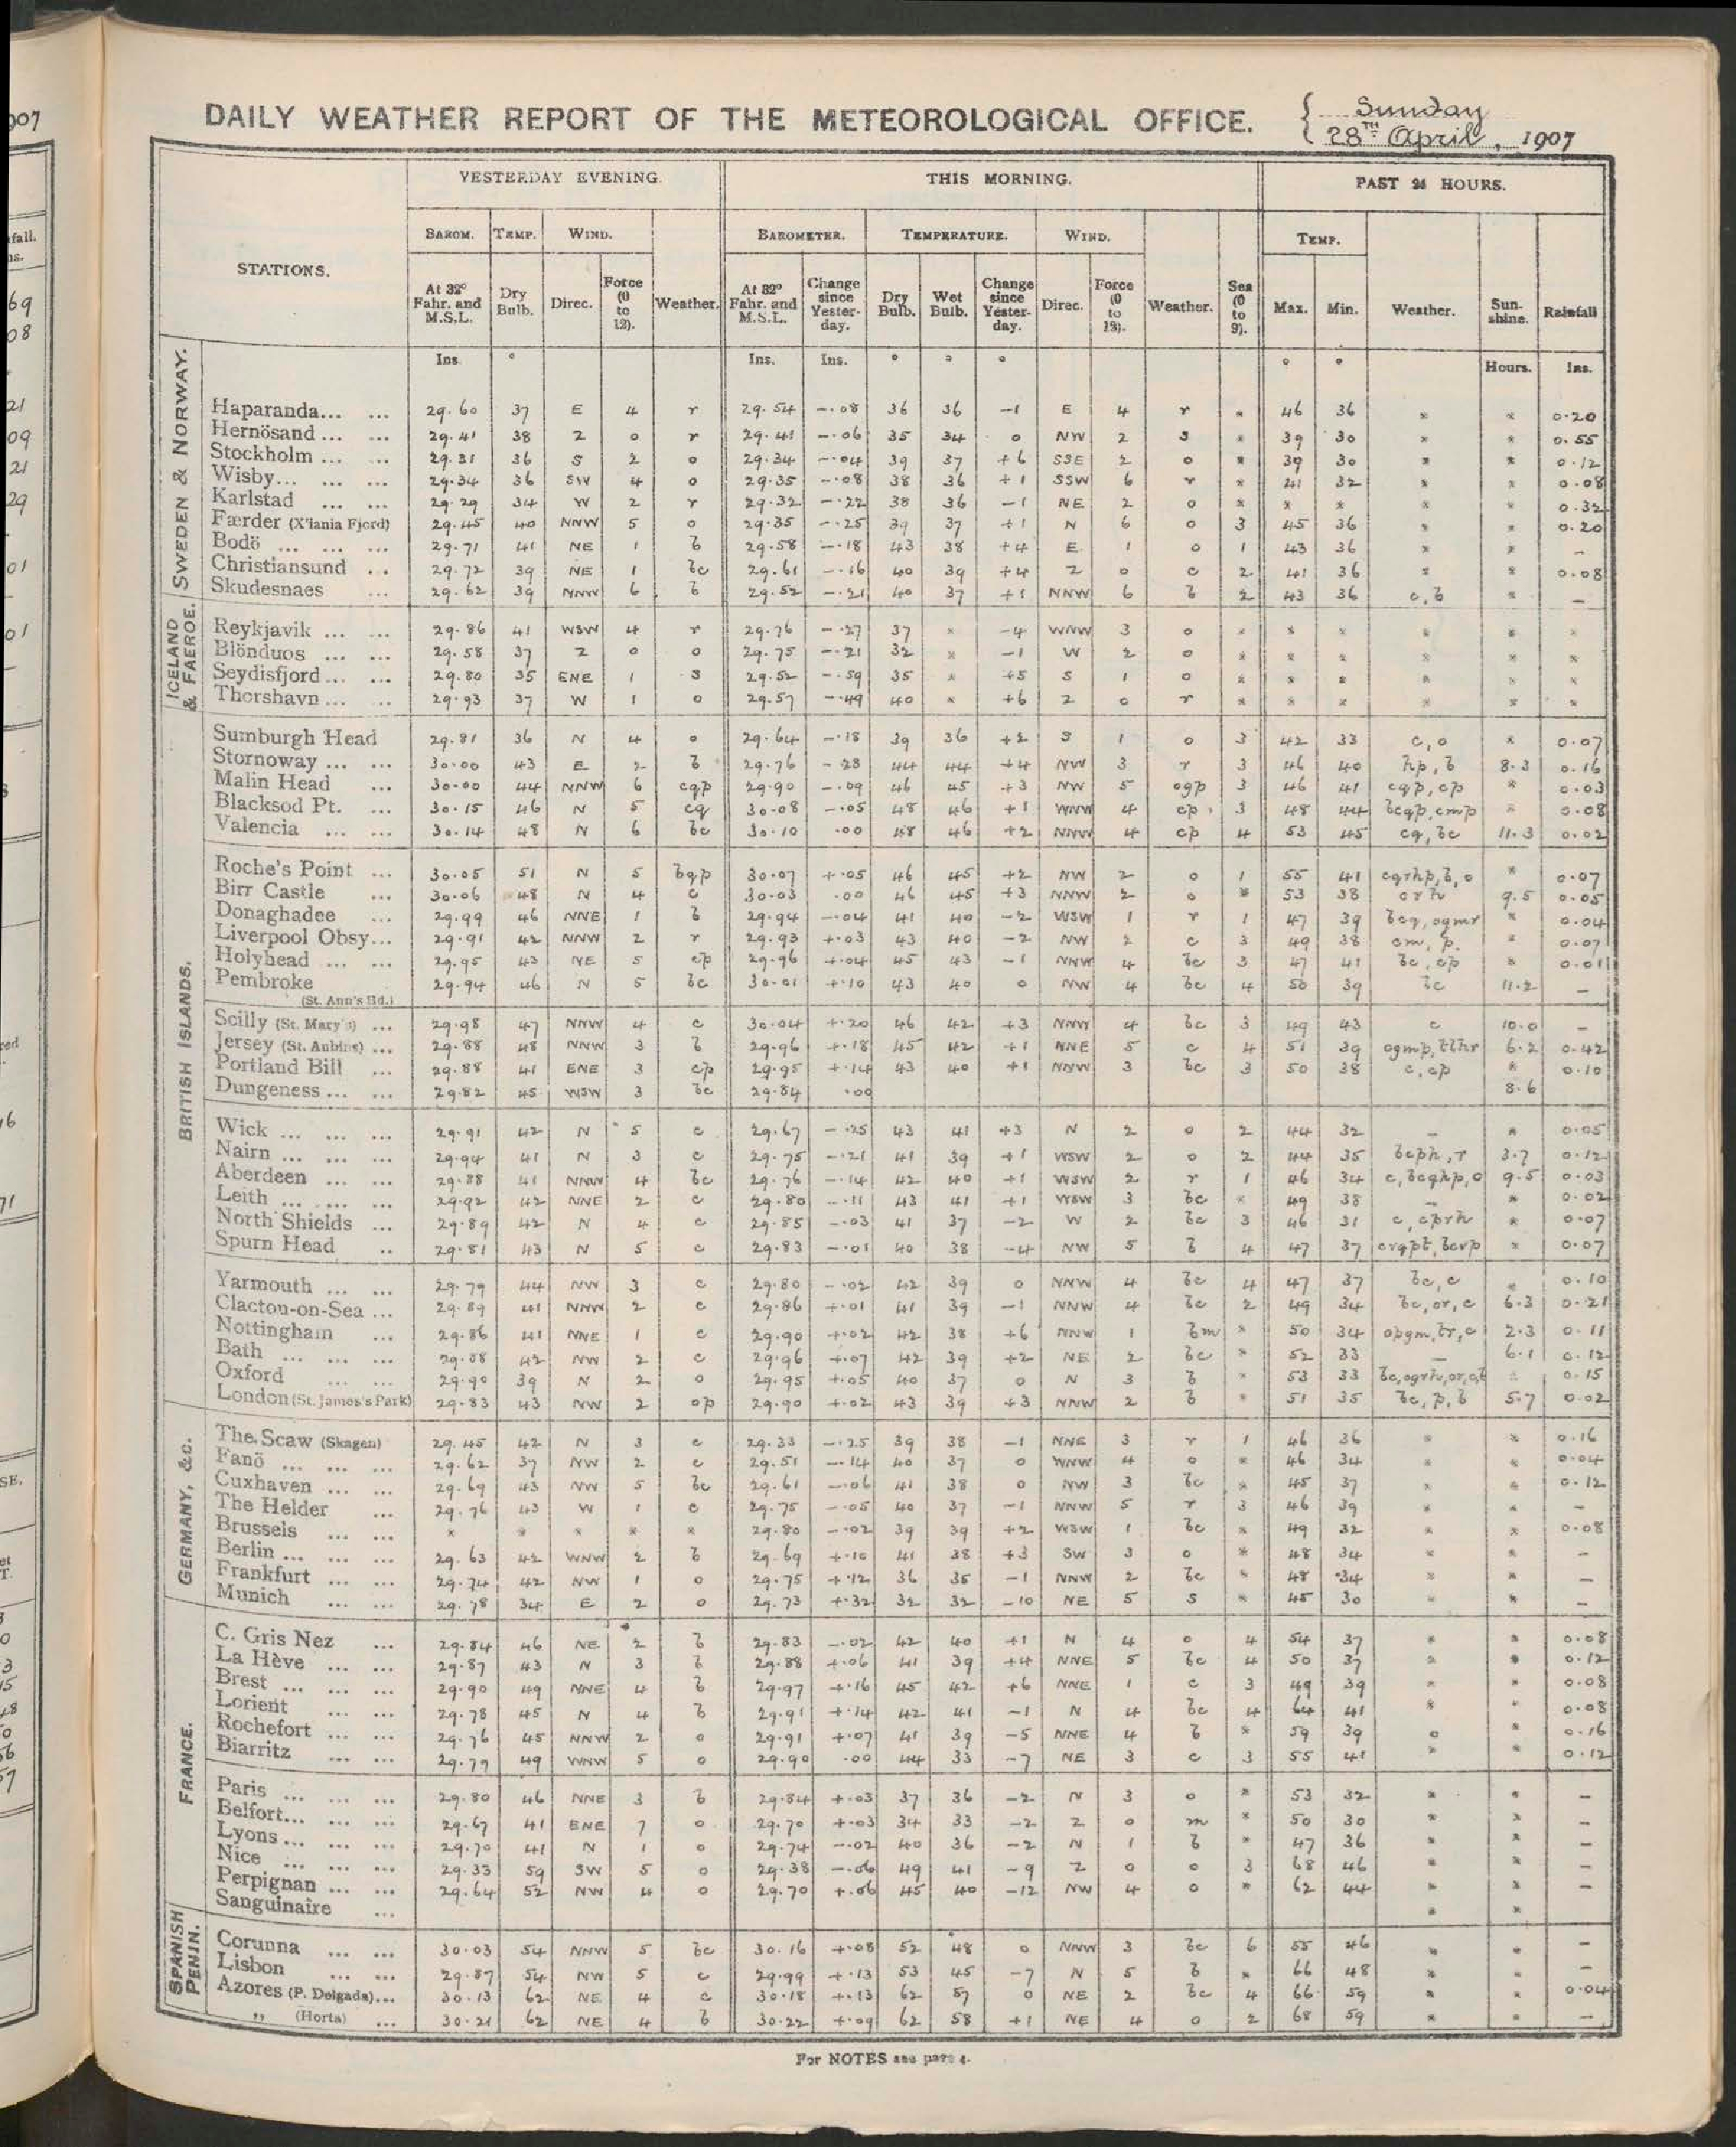 DAILY WEATHER REPORT OF THE METEOROLOGICAL OFFICE.
Sunday
28TH April, 1907
YESTERDAY EVENING. THIS MORNING. PAST 24 HOURS.
BAROM. TEMP. WIND. BAROMETER. TEMPERATURE. WIND. TEMP.
STATIONS. At 32° Fahr. and M.S.L. Dry Bulb. Direc. Force (0 to 12). Weather. At 32° Fahr. and M.S.L. Change since Yesterday. Dry Bulb. Wet Bulb. Change since Yesterday. Direc. Force (0 to 12). Weather. Sea (0 to 9). Max. Min. Weather. Sunshine. Rainfall
Ins. ° Ins. Ins. ° ° ° ° ° Hours. Ins.
SWEDEN & NORWAY.
Haparanda... ... 29.60 37 E 4 r 29.54 -.08 36 36 -1 E 4 r * 46 36 * * 0.20
Hernösand ... ... 29.41 38 Z 0 r 29.41 -.06 35 34 0 NW 2 s * 39 30 * * 0.55
Stockholm ... ... 29.31 36 S 2 o 29.34 -.04 39 37 +6 SSE 2 o * 39 30 * * 0.12
Wisby... ... ... 29.34 36 SW 4 o 29.35 -.08 38 36 +1 SSW 6 r * 41 32 * * 0.08
Karlstad ... ... 29.29 34 W 2 r 29.32 -.22 38 36 -1 NE 2 o * * * * * 0.32
Færder (X'iania Fjord) 29.45 40 NNW 5 o 29.35 -.25 39 37 +1 N 6 o 3 45 36 * * 0.20
Bodö ... ... ... 29.71 41 NE 1 b 29.58 -.18 43 38 +4 E 1 o 1 43 36 * * -
Christiansund ... 29.72 39 NE 1 bc 29.61 -.16 40 39 +4 Z 0 c 2 41 36 * * 0.08
Skudesnaes ... 29.62 39 NNW 6 b 29.52 -.21 40 37 +1 NNW 6 b 2 43 36 c, b * -
ICELAND & FAEROE.
Reykjavik ... ... 29.86 41 WSW 4 r 29.76 -.27 37 * -4 WNW 3 o * * * * * *
Blönduos ... ... 29.58 37 Z 0 o 29.75 -.21 32 * -1 W 2 o * * * * * *
Seydisfjord ... ... 29.80 35 ENE 1 s 29.52 -.59 35 * +5 S 1 o * * * * * *
Thorshavn ... ... 29.93 37 W 1 o 29.57 -.49 40 * +6 Z 0 r * * * * * *
BRITISH ISLANDS.
Sumburgh Head 29.81 36 N 4 o 29.64 -.18 39 36 +2 S 1 o 3 42 33 c, o * 0.07
Stornoway ... ... 30.00 43 E 2 b 29.76 -.28 44 44 +4 NW 3 r 3 46 40 hp, b 8.3 0.16
Malin Head ... 30.00 44 NNW 6 cqp 29.90 -.09 46 45 +3 NW 5 ogp 3 46 41 cqp, cp * 0.03
Blacksod Pt. ... 30.15 46 N 5 cq 30.08 -.05 48 46 +1 WNW 4 cp 3 48 44 bcqp, cmp * 0.08
Valencia ... ... 30.14 48 N 6 bc 30.10 .00 48 46 +2 NNW 4 cp 4 53 45 cq, bc 11.3 0.02
Roche's Point ... 30.05 51 N 5 bqp 30.07 +.05 46 45 +2 NW 2 o 1 55 41 cqrhp, b, o * 0.07
Birr Castle ... 30.06 48 N 4 c 30.03 .00 46 45 +3 NNW 2 o * 53 38 crh 9.5 0.05
Donaghadee ... 29.99 46 NNE 1 b 29.94 -.04 41 40 -2 WSW 1 r 1 47 39 bcq, ogmr * 0.04
Liverpool Obsy... 29.91 42 NNW 2 r 29.93 +.03 43 40 -2 NW 2 c 3 49 38 cm, p. * 0.07
Holyhead ... ... 29.95 43 NE 5 cp 29.96 +.04 45 43 -1 NNW 4 bc 3 47 41 bc, cp * 0.01
Pembroke (St. Ann's Hd.) 29.94 46 N 5 bc 30.01 +.10 43 40 0 NW 4 bc 4 50 39 bc 11.2 -
Scilly (St. Mary's) ... 29.98 47 NNW 4 c 30.04 +.20 46 42 +3 NNW 4 bc 3 49 43 c 10.0 -
Jersey (St. Aubins) ... 29.88 48 NNW 3 b 29.96 +.18 45 42 +1 NNE 5 c 4 51 39 ogmp, tlhr 6.2 0.42
Portland Bill ... 29.88 41 ENE 3 cp 29.95 +.14 43 40 +1 NNW 3 bc 3 50 38 c, cp * 0.10
Dungeness ... ... 29.82 45 WSW 3 bc 29.84 .00 8.6
Wick ... ... ... 29.91 42 N 5 c 29.67 -.25 43 41 +3 N 2 o 2 44 32 - * 0.05
Nairn ... ... ... 29.94 41 N 3 c 29.75 -.21 41 39 +1 WSW 2 o 2 44 35 bcph, r 3.7 0.12
Aberdeen ... ... 29.88 41 NNW 4 bc 29.76 -.14 42 40 +1 WSW 2 r 1 46 34 c, bcqhp, o 9.5 0.03
Leith ... ... ... 29.92 42 NNE 2 c 29.80 -.11 43 41 +1 WSW 3 bc * 49 38 - * 0.02
North Shields ... 29.89 42 N 4 c 29.85 -.03 41 37 -2 W 2 bc 3 46 31 c, cprh * 0.07
Spurn Head .. 29.81 43 N 5 c 29.83 -.01 40 38 -4 NW 5 b 4 47 37 crqpt, bcrp * 0.07
Yarmouth ... ... 29.79 44 NW 3 c 29.80 -.02 42 39 0 NNW 4 bc 4 47 37 bc, c * 0.10
Clacton-on-Sea ... 29.89 41 NNW 2 c 29.86 +.01 41 39 -1 NNW 4 bc 2 49 34 bc, or, c 6.3 0.21
Nottingham ... 29.86 41 NNE 1 c 29.90 +.02 42 38 +6 NNW 1 bm * 50 34 opgm, tr, c 2.3 0.11
Bath ... ... ... 29.88 42 NW 2 c 29.96 +.07 42 39 +2 NE 2 bc * 52 33 - 6.1 0.12
Oxford ... ... 29.90 39 N 2 o 29.95 +.05 40 37 0 N 3 b * 53 33 bc, ogrh, or, c, b * 0.15
London (St. James's Park) 29.83 43 NW 2 op 29.90 +.02 43 39 +3 NNW 2 b * 51 35 bc, p, b 5.7 0.02
GERMANY, &c.
The Scaw (Skagen) 29.45 42 N 3 c 29.33 -.25 39 38 -1 NNE 3 r 1 46 36 * * 0.16
Fanö ... ... ... 29.62 37 NW 2 c 29.51 -.14 40 37 0 WNW 4 o * 46 34 * * 0.04
Cuxhaven ... ... 29.69 43 NW 5 bc 29.61 -.06 41 38 0 NW 3 bc * 45 37 * * 0.12
The Helder ... 29.76 43 W 1 c 29.75 -.05 40 37 -1 NNW 5 r 3 46 39 * * -
Brussels ... ... * * * * * 29.80 -.02 39 39 +2 WSW 1 bc * 49 32 * * 0.08
Berlin ... ... ... 29.63 42 WNW 2 b 29.69 +.10 41 38 +3 SW 3 o * 48 34 * * -
Frankfurt ... ... 29.74 42 NW 1 o 29.75 +.12 36 35 -1 NNW 2 bc * 48 34 * * -
Munich ... ... 29.78 34 E 2 o 29.73 +.32 32 32 -10 NE 5 s * 45 30 * * -
FRANCE.
C. Gris Nez ... 29.84 46 NE 2 b 29.83 -.02 42 40 +1 N 4 o 4 54 37 * * 0.08
La Hève ... ... 29.87 43 N 3 b 29.88 +.06 41 39 +4 NNE 5 bc 4 50 37 * * 0.12
Brest ... ... ... 29.90 49 NNE 4 b 29.97 +.16 45 42 +6 NNE 1 c 3 49 39 * * 0.08
Lorient ... ... 29.78 45 N 4 b 29.91 +.14 42 41 -1 N 4 bc 4 64 41 * * 0.08
Rochefort ... ... 29.76 45 NNW 2 o 29.91 +.07 41 39 -5 NNE 4 b * 59 39 o * 0.16
Biarritz ... ... 29.79 49 WNW 5 o 29.90 .00 44 33 -7 NE 3 c 3 55 41 * * 0.12
Paris ... ... ... 29.80 46 NNE 3 b 29.84 +.03 37 36 -2 N 3 o * 53 32 * * -
Belfort... ... ... 29.67 41 ENE 7 o 29.70 +.03 34 33 -2 Z 0 m * 50 30 * * -
Lyons ... ... ... 29.70 41 N 1 o 29.74 -.02 40 36 -2 N 1 b * 47 36 * * -
Nice ... ... ... 29.33 59 SW 5 o 29.38 -.06 49 41 -9 Z 0 o 3 68 46 * * -
Perpignan ... ... 29.64 52 NW 4 o 29.70 +.06 45 40 -12 NW 4 o * 62 44 * * -
Sanguinaire ... * *
SPANISH PENIN.
Corunna ... ... 30.03 54 NNW 5 bc 30.16 +.08 52 48 0 NNW 3 bc 6 55 46 * * -
Lisbon ... ... 29.87 54 NW 5 c 29.99 +.13 53 45 -7 N 5 b * 66 48 * * -
Azores (P. Delgada)... 30.13 62 NE 4 c 30.18 +.13 62 57 0 NE 2 bc 4 66 59 * * 0.04
„ (Horta) ... 30.21 62 NE 4 b 30.22 +.09 62 58 +1 NE 4 o 2 68 59 * * -
For NOTES see page 4.